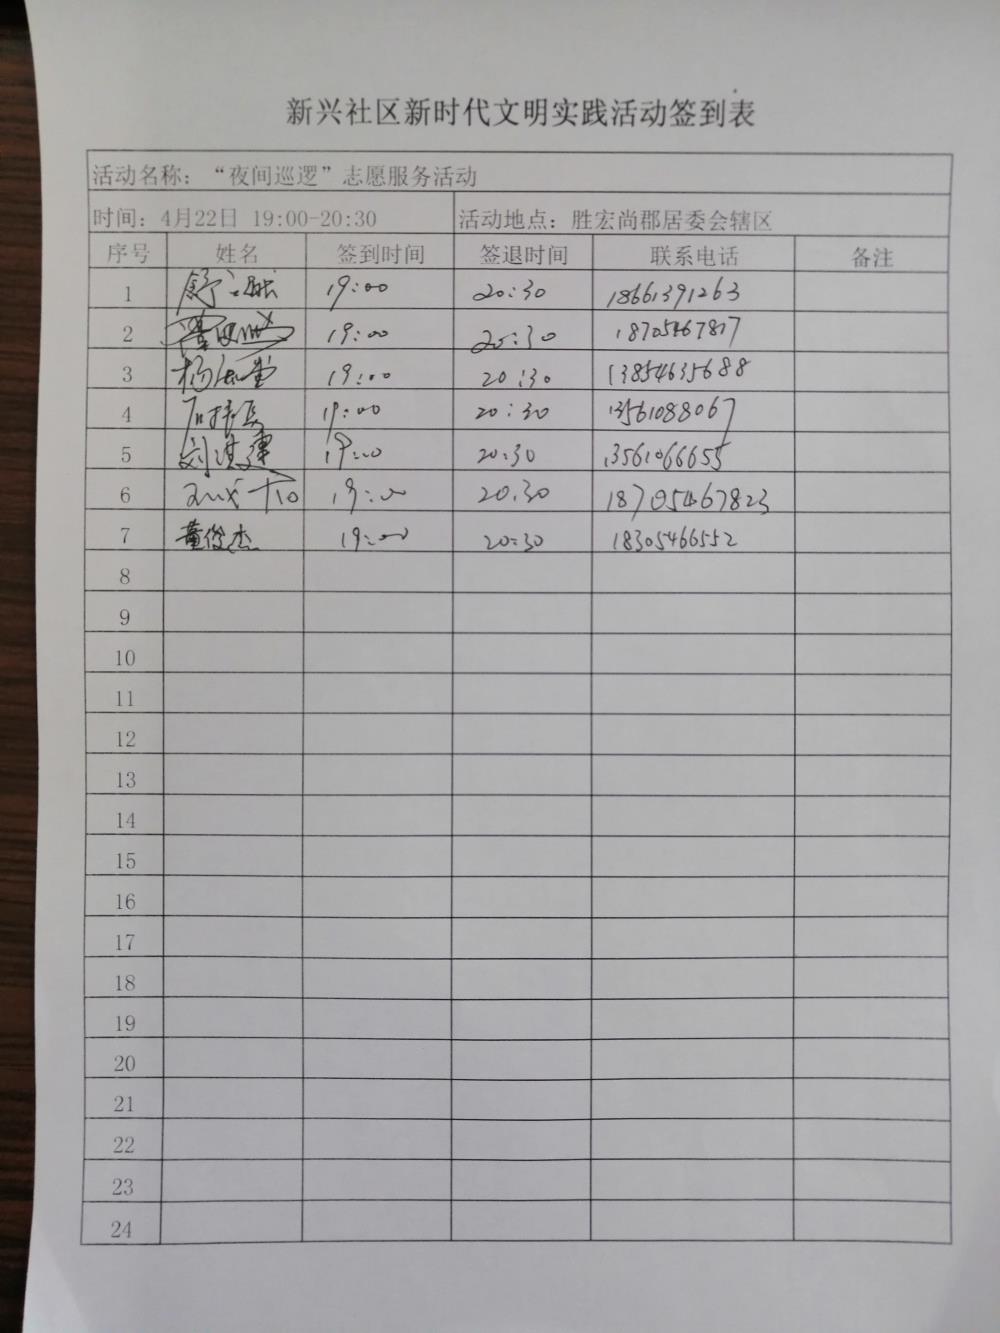 新兴社区新时代文明实践活动签到表
活动名称：“夜间巡逻”志愿服务活动
时间：4月22日 19:00-20:30 活动地点：胜宏尚郡居委会辖区
序号 姓名 签到时间 签退时间 联系电话 备注
1 舒 19:00 20:30 18661391263
2 19:00 20:30 18705467817
3 杨 19:00 20:30 13854635688
4 19:00 20:30 13561088067
5 刘洪建 19:00 20:30 13561066655
6 19:00 20:30 18705467823
7 董俊杰 19:00 20:30 18305466552
8
9
10
11
12
13
14
15
16
17
18
19
20
21
22
23
24